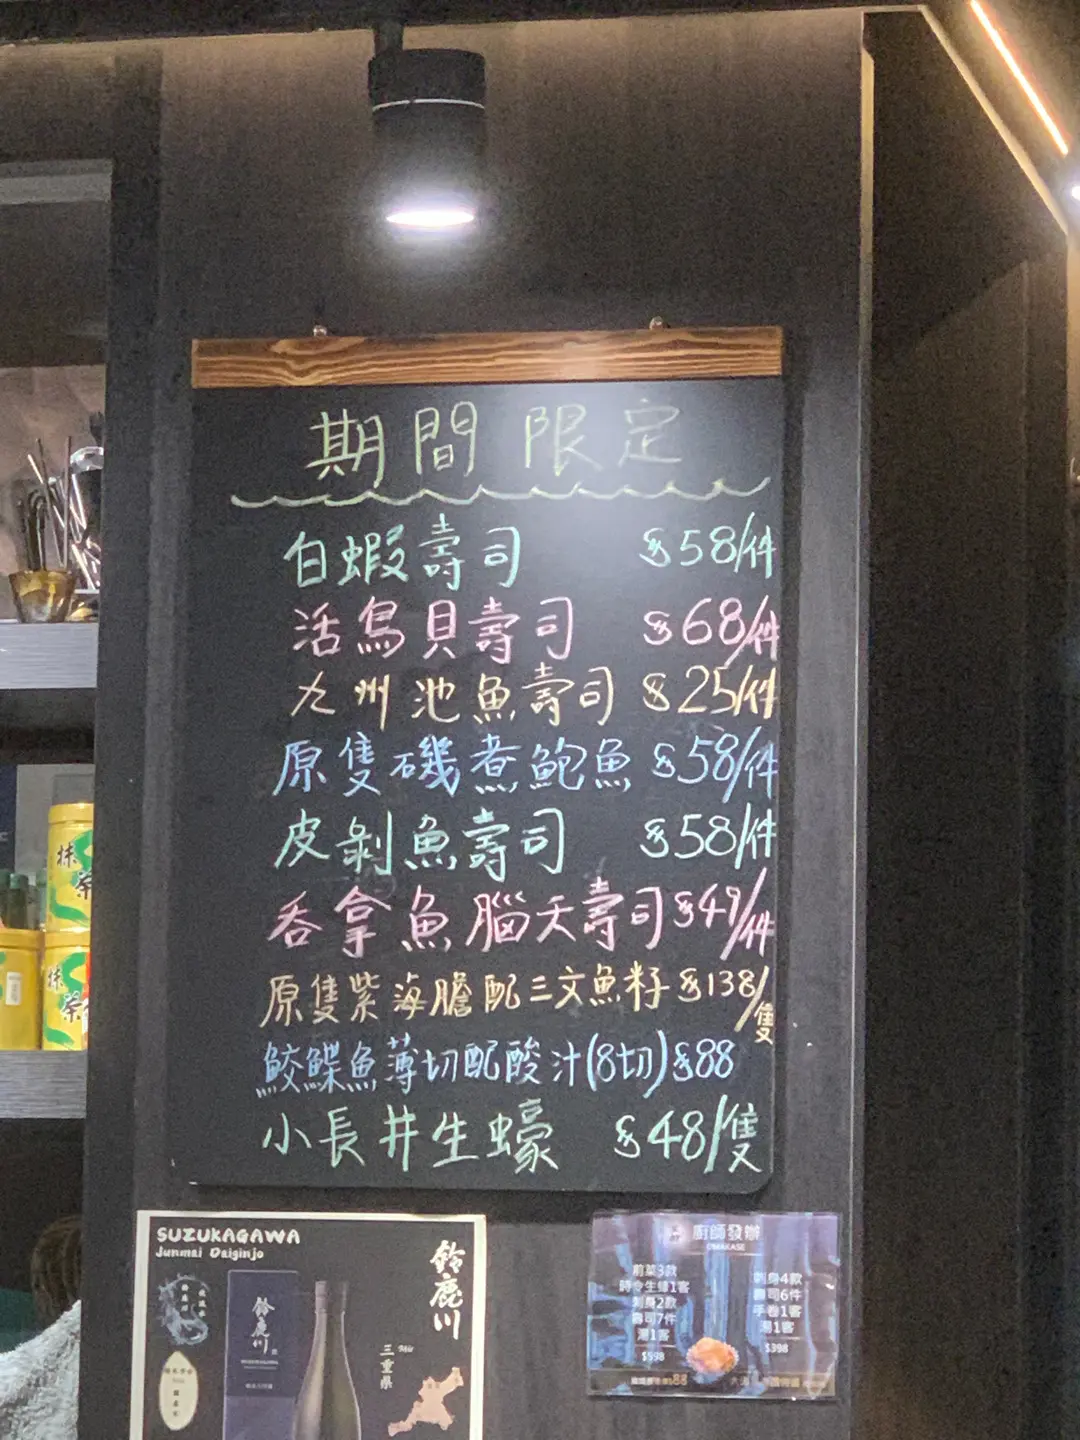 期間限定
白蝦壽司 $58/件
活鳥貝壽司 $68/件
九州池魚壽司 $25/件
原隻磯煮鮑魚 $58/件
皮剝魚壽司 $58/件
吞拿魚腦天壽司 $49/件
原隻紫海膽配三文魚籽 $138/隻
鮫鰈魚薄切配酸汁(8切) $88
小長井生蠔 $48/隻
SUZUKAGAWA
Junmai Daiginjo
鈴鹿川
鈴鹿川
三重県
Mie
抹茶
抹茶
廚師發辦
OMAKASE
前菜3款
時令生蠔1客
刺身2款
壽司7件
湯1客
$598
刺身4款
壽司6件
手卷1客
湯1客
$398